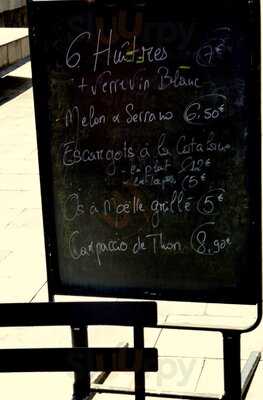 6 Huîtres 7€
+ verre vin Blanc
Melon & Serrano 6.50€
Escargots à la Catalane
- en plat
- en tapas 5€
Os à Moëlle grillé 5€
Carpaccio de Thon 8,90€